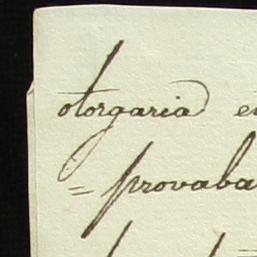 otorgaria e
= provaba